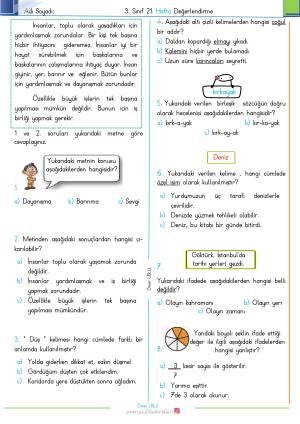 Adı Soyadı:
3. Sınıf 21. Hafta Değerlendirme
İnsanlar, toplu olarak yaşadıkları için
yardımlaşmak zorundalar. Bir kişi tek başına
hiçbir ihtiyacını gideremez. İnsanlar iyi bir
hayat sürebilmek için başkalarına ve
başkalarının çalışmalarına ihtiyaç duyar. İnsan
giyinir, yer, barınır ve eğlenir. Bütün bunlar
için yardımlaşmak ve dayanışmak zorundadır.
Özellikle büyük işlerin tek başına
yapılması mümkün değildir. Bunun için iş
birliği yapmak gerekir.
1 ve 2. soruları yukarıdaki metne göre
cevaplayınız.
Yukarıdaki metnin konusu
aşağıdakilerden hangisidir?
1.
a) Dayanışma b) Barınma c) Sevgi
2. Metinden aşağıdaki sonuçlardan hangisi çı-
karılabilir?
a) İnsanlar toplu olarak yaşamak zorunda
değildir.
b) İnsanlar yardımlaşmak ve iş birliği
yapmak zorundadır.
c) Özellikle büyük işlerin tek başına
yapılması mümkündür.
3. " Düş " kelimesi hangi cümlede farklı bir
anlamda kullanılmıştır?
a) Yolda giderken dikkat et, sakın düşme!
b) Gördüğüm düşten çok etkilendim.
c) Koridorda yere düştükten sonra ağladım.
4. Aşağıdaki altı çizili kelimelerden hangisi çoğul
bir addır?
a) Daldan kopardığı elmayı yıkadı.
b) Kalemini hiçbir yerde bulamadı.
c) Uzun süre karıncaları seyretti.
kırkayak
5. Yukarıdaki verilen birleşik sözcüğün doğru
olarak hecelenişi aşağıdakilerden hangisidir?
a) kırk-a-yak b) kır-ka-yak
c) kırk-ay-ak
Deniz
6. Yukarıdaki verilen kelime , hangi cümlede
özel isim olarak kullanılmıştır?
a) Yurdumuzun üç tarafı denizlerle
çevrilidir.
b) Denizde yüzmek tehlikeli olabilir.
c) Deniz, bu kitabı bir günde bitirdi.
Göktürk, İstanbul'da
tarihi yerleri gezdi.
7.
Yukarıdaki ifadede aşağıdakilerden hangisi belli
değildir?
a) Olayın kahramanı b) Olayın yeri
c) Olayın zamanı
Yandaki boyalı şeklin ifade ettiği
değer ile ilgili aşağıdaki ifadelerden
hangisi yanlıştır?
8.
a) 3/7 kesir sayısı ile gösterilir.
b) Yarıma eşittir.
c) 7'de 3 olarak okunur.
Öner USLU
Öner USLU